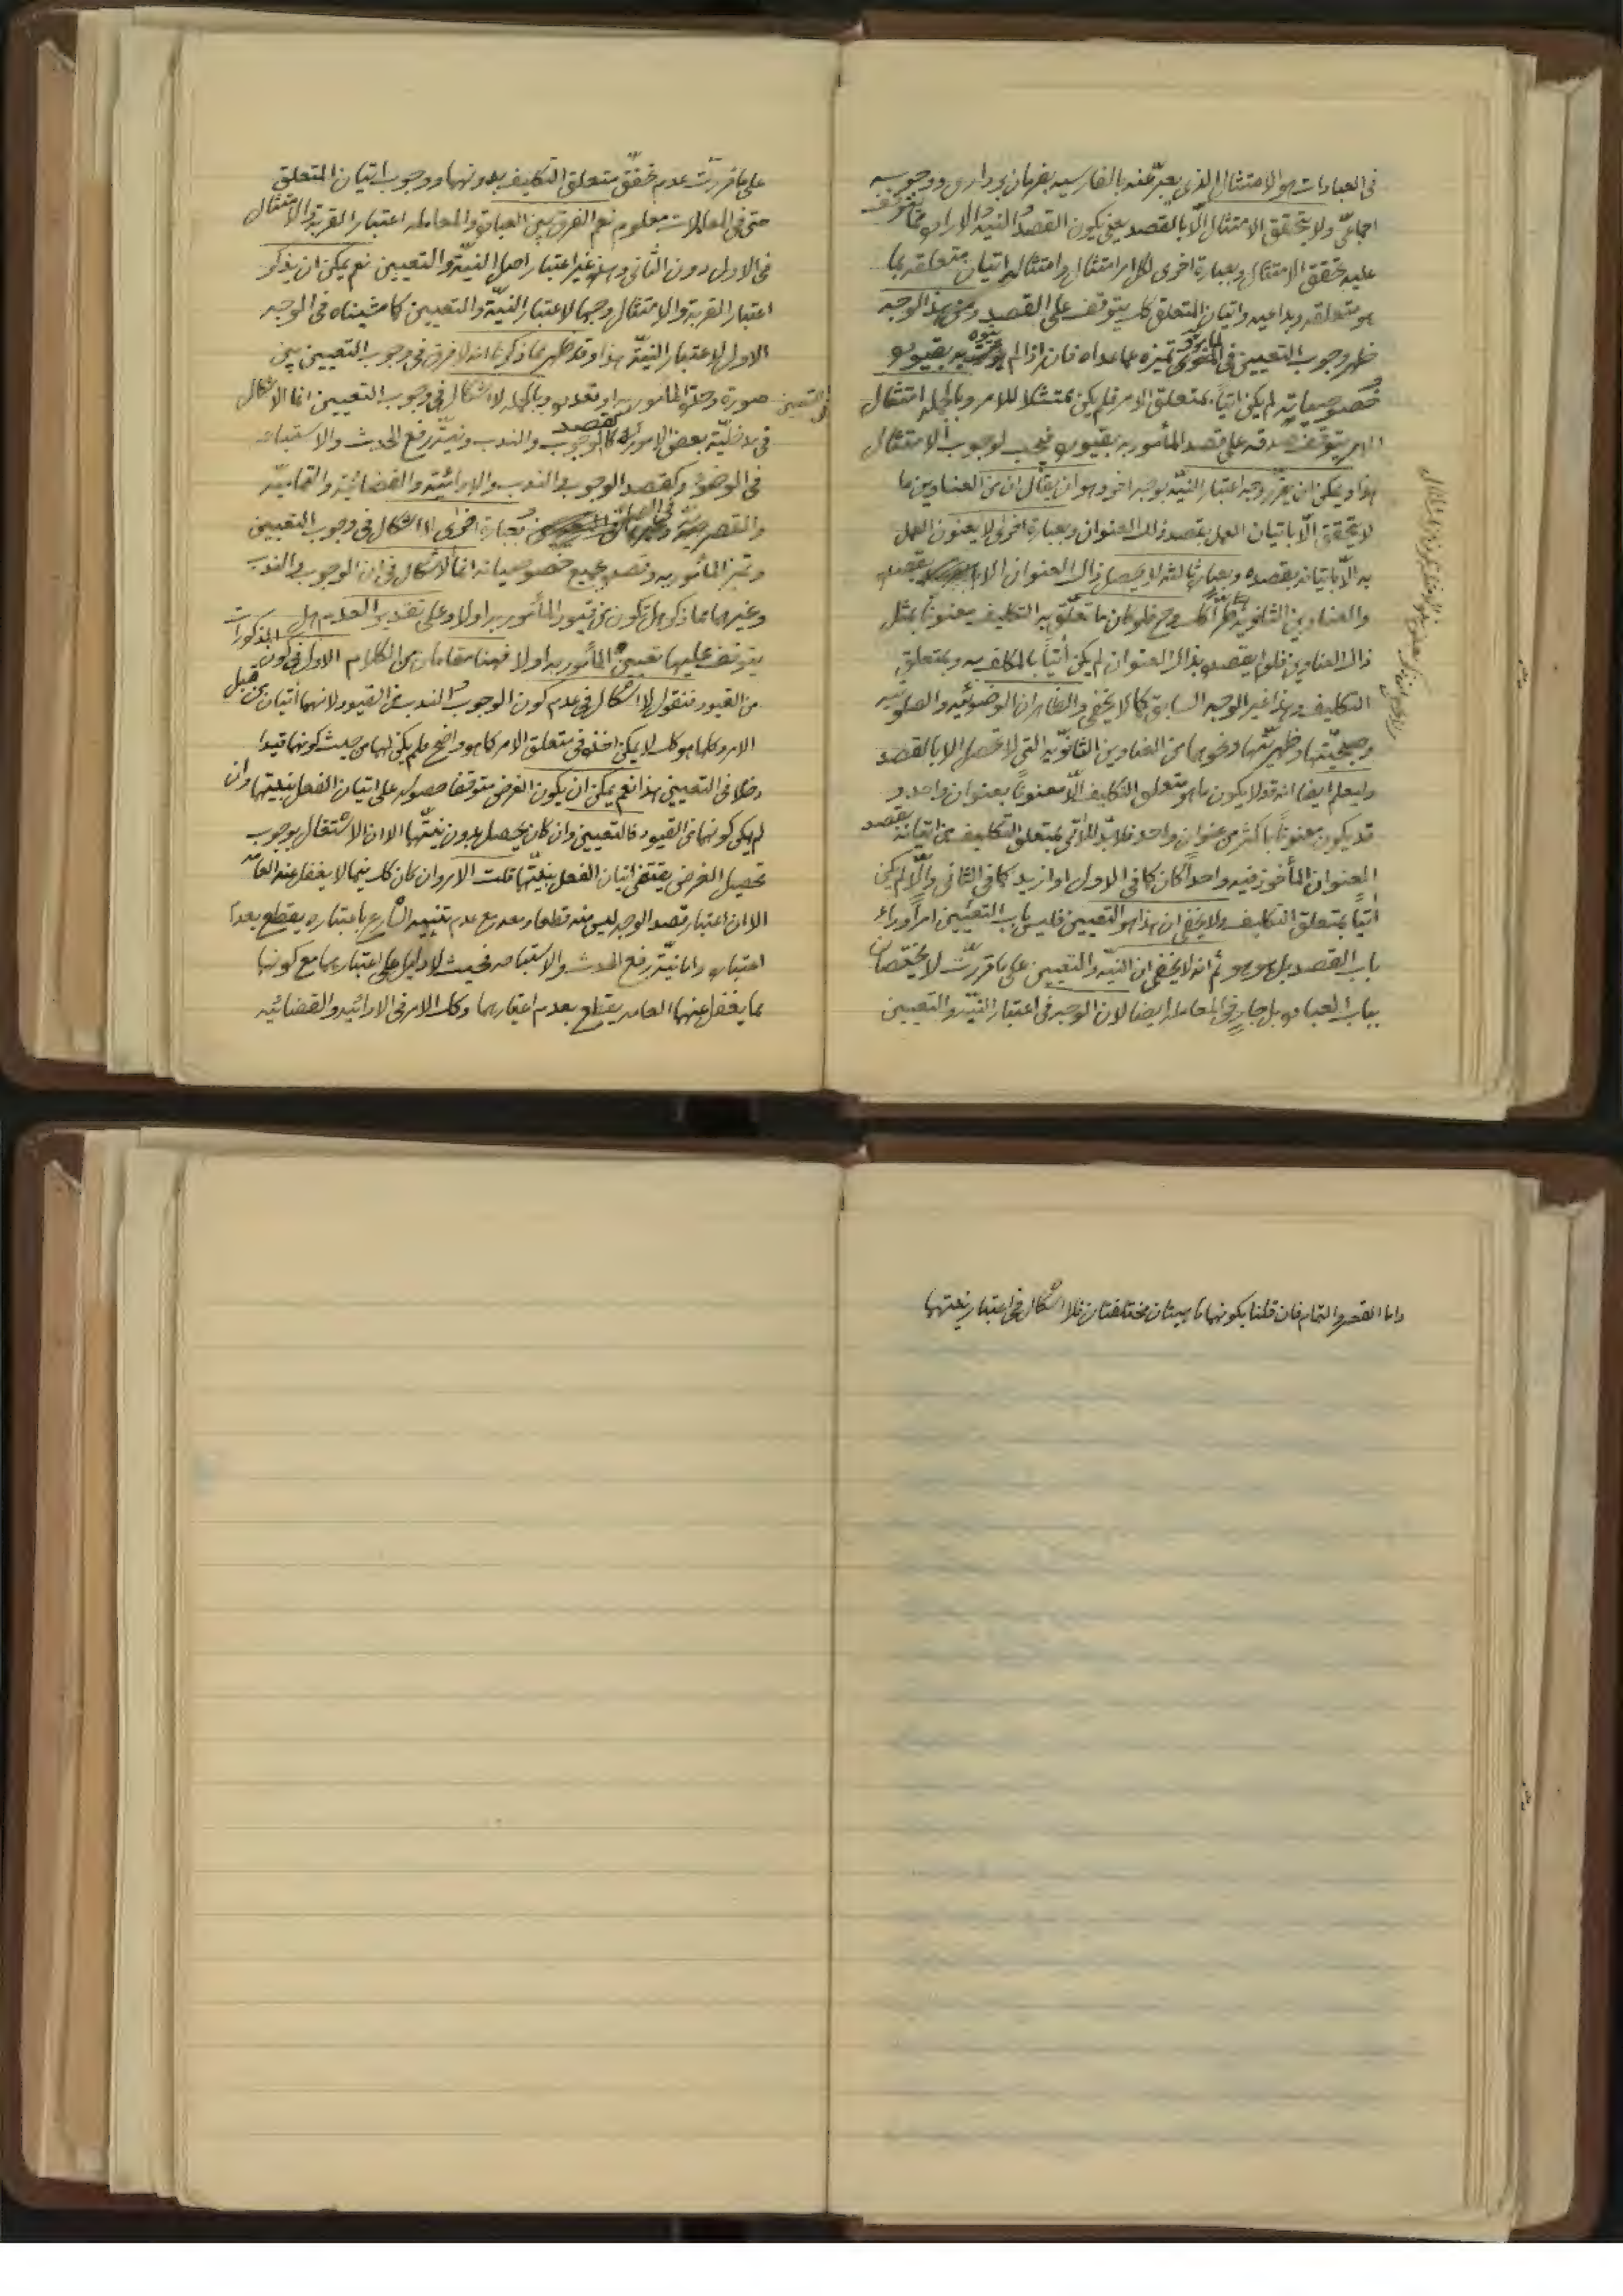 فى العبادات هو الامتثال الذى يعبّر عنه بالفارسيه بفرمان بردارى ووجوبه
اجماعىّ ولا يتحقق الامتثال الّا بالقصد يعنى يكون القصد والنيه والاراده مما يتوقف
عليه تحقق الامتثال وبعبارة اخرى لكل امر امتثال وامتثاله اتيان متعلقه بما
هو متعلقه وبداعيه واتيان المتعلق كك يتوقف على القصد ومن هذا الوجه
ظهر وجوب التعيين فى تميزه عما عداه فان اذا لم به بقيوده
وخصوصياته لم يكن اتياً بمتعلق الامر فلم يكن ممتثلا للامر وبالجمله امتثال
الامر يتوقف صدقه على قصد المأمور به بقيوده فيجب لوجوب الامتثال
هذا ويمكن ان يقرّر وجه اعتبار النيّه بوجه اخر وهو ان يقال ان من العناوين ما
لا يتحقق الّا باتيان العمل بقصد ذلك العنوان وبعبارة اخرى لا يعنون العمل
به الّا باتيانه بقصده وبعبارة ثالثه لا يحصل ذلك العنوان الا بقصده
والعناوين الثانويه كك وح فلو كان ما تعلّق به التكليف معنوناً بمثل
ذلك العناوين فلو لم يقصد بذلك العنوان لم يكن اتياً بالمكلف به وبمتعلق
التكليف وهذا غير الوجه السابق كما لا يخفى والظاهر ان الوضوئيه والصلوتيه
وصبحيّتها وظهريّتها ونحوهما من العناوين الثانويّه التى لا تحصل الا بالقصد
وليعلم ايضا انه قد لا يكون ما هو متعلق التكليف الّا معنونا بعنوان واحد و
قد يكون معنوناً باكثر من عنوان واحد فلا بدّ للاتى بمتعلق التكليف من اتيانه بقصد
العنوان المأخوذ فيه واحداً كان كما فى الاول او ازيد كما فى الثانى والّا لم يكن
اتياً بمتعلق التكليف ولا يخفى ان هذا هو التعيين فليس باب التعيين امراً وراء
باب القصد بل هو هو ثم انه لا يخفى ان النيّه والتعيين على ما قررت لا يختصان
بباب العباده بل جارٍ فى المعامله ايضا لان الوجه فى اعتبار النيّة والتعيين
على ما قررت عدم تحقق متعلق التكليف بدونهما ووجوب اتيان المتعلق
حتى فى المعاملات معلوم نعم الفرق بين العباده والمعامله اعتبار القربة والامتثال
فى الاول دون الثانى وهذا غير اعتبار اصل النيّة والتعيين نعم يمكن ان يذكر
اعتبار القربة والامتثال وجها لاعتبار النيّة والتعيين كما مشيناه فى الوجه
الاول لاعتبار النيّة هذا وقد ظهر مما ذكرنا انه لا فرق فى وجوب التعيين بين
صورة وحدة المأمور به او تعدده وبالجمله لا اشكال فى وجوب التعيين انما الاشكال
فى مدخليّة بعض الامور فى التعيين كقصد الوجوب والندب ونيّة رفع الحدث والاستباحه
فى الوضوء وكقصد الوجوب والندب والادائيّة والقضائيّة والتماميّة
والقصريّة فى الصلوة وبعبارة اخرى لا اشكال فى وجوب التعيين
وتميز المأمور به وقصده بجميع خصوصياته انما الاشكال فى ان الوجوب والندب
وغيرهما مما ذكر هل تكون من قيود المأمور به اولا وعلى تقدير العدم هل
يتوقف عليها تعيين المأمور به اولا فهنا مقامان من الكلام الاول فى كون المذكورات
من القيود فنقول لا اشكال فى عدم كون الوجوب والندب من القيود لانهما اتيان من قبل
الامر وكلما هو كك لا يمكن اخذه فى متعلق الامر كما هو واضح فلم يكن لهما من حيث كونهما قيدا
دخلا فى التعيين هذا نعم يمكن ان يكون الغرض متوقفا حصوله على اتيان الفعل بنيتهما وان
لم يكن كونهما من القيود فالتعيين وان كان يحصل بدون نيتّهما الا ان الاشتغال بوجوب
تحصيل الغرض يقتضى اتيان الفعل بنيّتهما قلت الامر وان كان كك فيما لا يغفل عنه العامّه
الا ان اعتبار قصد الوجه ليس منه قطعا وبعد عدم تنبيه الشارع باعتباره يقطع بعدم
اعتباره واما نيّة رفع الحدث والاستباحه فحيث لا دليل على اعتبارهما مع كونهما
مما يغفل عنهما العامه يقطع بعدم اعتبارهما وكك الامر فى الادائيه والقضائيه
واما القصر والتمام فان قلنا بكونهما ماهيتان مختلفتان فلا اشكال فى اعتبار نيتهما